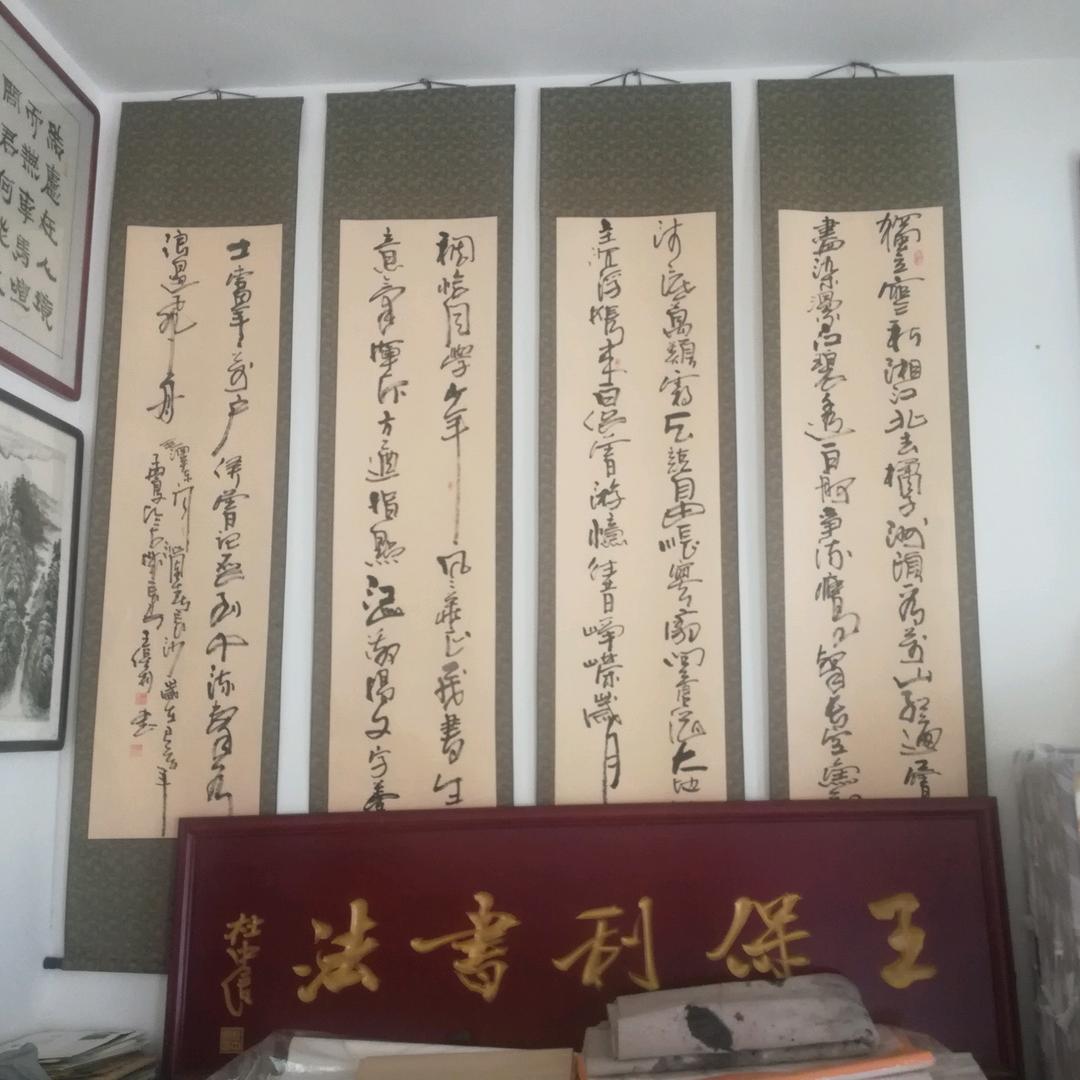 獨立寒秋湘江北去橘子洲頭看萬山紅遍層
盡染漫江碧透百舸爭流鷹擊長空魚翔
淺底萬類霜天競自由悵寥廓問蒼茫大地
主沉浮攜來百侶曾游憶往昔崢嶸歲月
稠恰同學少年風華正茂書生
意氣揮斥方遒指點江山激揚文字糞
土當年萬戶侯曾記否到中流擊水
浪遏飛舟
毛澤東詞沁園春長沙歲在己亥年
王保利書
結廬在人境
而無車馬喧
問君何能
王保利書法
杜中信